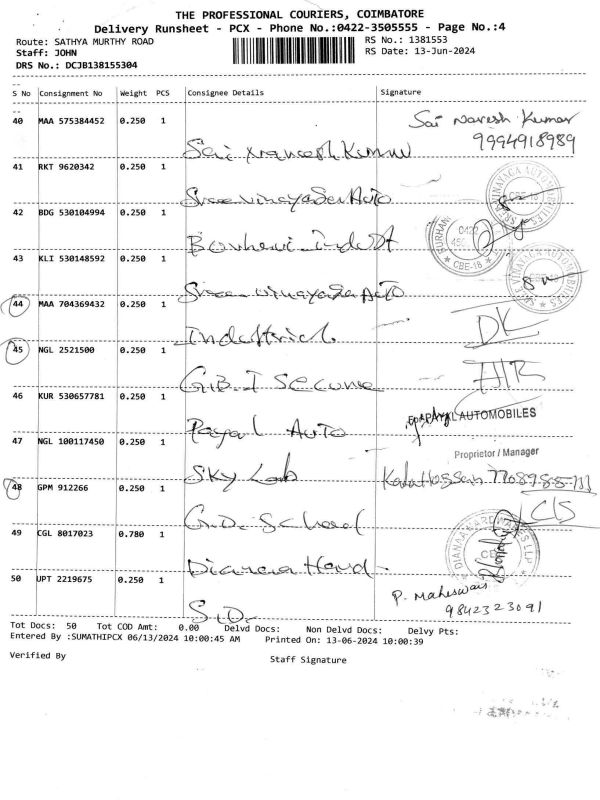 THE PROFESSIONAL COURIERS, COIMBATORE
Delivery Runsheet - PCX - Phone No.:0422-3505555 - Page No.:4
Route: SATHYA MURTHY ROAD
RS No.: 1381553
Staff: JOHN
RS Date: 13-Jun-2024
DRS No.: DCJB138155304
S No Consignment No Weight PCS Consignee Details Signature
40 MAA 575384452 0.250 1
Sai Naresh Kumar
9994918989
Sai Nareesh Kumar
41 RKT 9620342 0.250 1
Sree Vinayaga Auto
42 BDG 530104994 0.250 1
Borhani Indust
43 KLI 530148592 0.250 1
Sree Vinayaga Auto
44 MAA 704369432 0.250 1
Industrial
DK
45 NGL 2521500 0.250 1
G.B.I Secure
46 KUR 530657781 0.250 1
For PAYAL AUTOMOBILES
Payal Auto
47 NGL 100117450 0.250 1
Proprietor / Manager
Sky Lab
48 GPM 912266 0.250 1
G.D. School
CIS
49 CGL 8017023 0.780 1
DIANAA HARDWARES LLP
Dianaa Hard
50 UPT 2219675 0.250 1
P. Maheswari
9842323091
S.D.
Tot Docs: 50 Tot COD Amt: 0.00 Delvd Docs: Non Delvd Docs: Delvy Pts:
Entered By :SUMATHIPCX 06/13/2024 10:00:45 AM Printed On: 13-06-2024 10:00:39
Verified By
Staff Signature